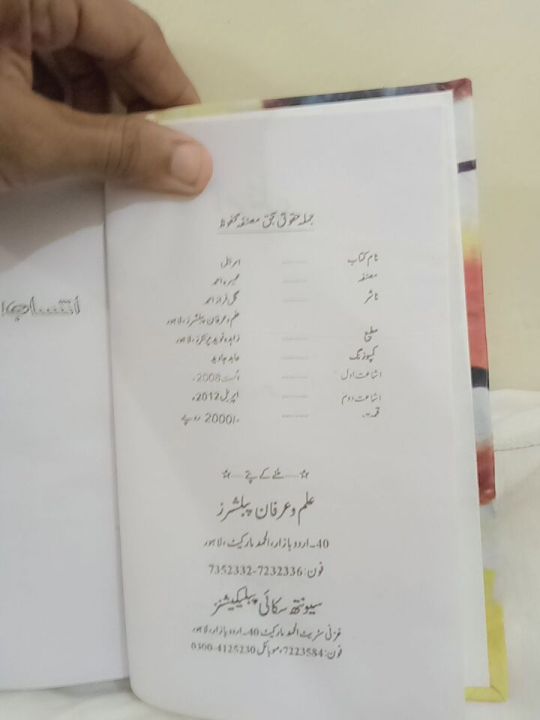 انتساب!
جملہ حقوق بحق مصنفہ محفوظ
نام کتاب ۔۔۔۔۔۔ امربیل
مصنفہ ۔۔۔۔۔۔ عمیرہ احمد
ناشر ۔۔۔۔۔۔ گل فراز احمد
علم و عرفان پبلشرز، لاہور
مطبع ۔۔۔۔۔۔ زاہدہ نوید پرنٹرز، لاہور
کمپوزنگ ۔۔۔۔۔۔ عابد جاوید
اشاعت اول ۔۔۔۔۔۔ اگست 2008ء
اشاعت دوم ۔۔۔۔۔۔ اپریل 2012ء
قیمت ۔۔۔۔۔۔ 2000/- روپے
☆.....ملنے کے پتے.....☆
علم و عرفان پبلشرز
40۔اردو بازار، الحمد مارکیٹ، لاہور
فون: 7232336-7352332
سیونتھ سکائی پبلیکیشنز
غزنی سٹریٹ الحمد مارکیٹ 40۔اردو بازار، لاہور
فون: 7223584، موبائل 0300-4125230